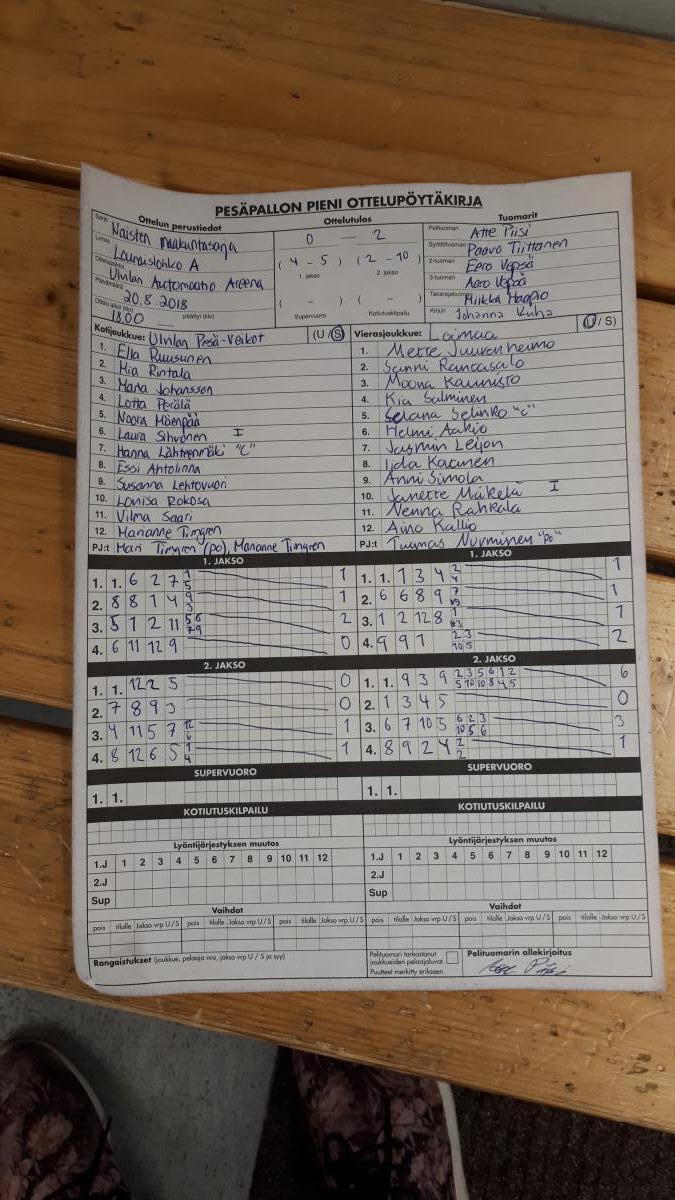 PESÄPALLON PIENI OTTELUPÖYTÄKIRJA
Ottelun perustiedot Ottelutulos Tuomarit
Sarja Naisten maakuntasarja
Lohko Lounaislohko A
Ottelupaikka Ulvilan Automaatio Areena
Päivämäärä 20.8.2018
Ottelu alkoi (klo) 18.00 päättyi (klo)
0 — 2
( 4 - 5 ) ( 2 - 10 )
1. jakso 2. jakso
( - ) ( - )
Supervuoro Kotiutuskilpailu
Pelituomari Atte Piisi
Syöttötuomari Paavo Tiittanen
2-tuomari Eero Vepsä
3-tuomari Aaro Vepsä
Takarajatuomari Miikka Haapio
Kirjuri Johanna Kuha
Kotijoukkue: Ulvilan Pesä-Veikot (U / S)
1. Ella Ruusunen
2. Mia Rintala
3. Maria Johansson
4. Lotta Perälä
5. Noora Mäenpää
6. Laura Sihvonen I
7. Hanna Lähteenmäki "C"
8. Essi Ahtolinna
9. Susanna Lehtovuori
10. Loviisa Rokosa
11. Vilma Saari
12. Marianne Timgren
PJ:t Mari Timgren (po), Marianne Timgren
Vierasjoukkue: Loimaa (U / S)
1. Mette Juurenheimo
2. Sanni Rantasalo
3. Moona Kaunisto
4. Kia Salminen
5. Selinko "C"
6. Helmi Aakio
7. Jasmin Leijon
8. Iida Kaunen
9. Anni Simola
10. Janette Mäkelä I
11. Nenna Rahkala
12. Aino Kallio
PJ:t Tuomas Nurminen "po"
1. JAKSO
1. 1. 6 2 7 1 5 1
2. 8 8 1 4 9 3 1
3. 5 1 2 11 5 6 7 9 2
4. 6 11 12 9 0
1. JAKSO
1. 1. 1 3 4 2 4 1
2. 6 6 8 9 7 1
3. 1 2 12 8 1 1
4. 9 9 1 2 3 10 5 2
2. JAKSO
1. 1. 12 2 5 0
2. 7 8 9 3 0
3. 4 11 5 7 12 6 1
4. 8 12 6 5 1 4 1
2. JAKSO
1. 1. 9 3 9 2 3 5 6 1 2 5 10 10 8 4 5 6
2. 1 3 4 5 0
3. 6 7 10 5 6 2 3 10 5 6 3
4. 8 9 2 4 2 2 1
SUPERVUORO SUPERVUORO
1. 1. 1. 1.
KOTIUTUSKILPAILU KOTIUTUSKILPAILU
Lyöntijärjestyksen muutos Lyöntijärjestyksen muutos
1.J 1 2 3 4 5 6 7 8 9 10 11 12 1.J 1 2 3 4 5 6 7 8 9 10 11 12
2.J 2.J
Sup Sup
Vaihdot Vaihdot
pois tilalle Jakso vrp U / S pois tilalle Jakso vrp U / S pois tilalle Jakso vrp U / S pois tilalle Jakso vrp U / S pois tilalle Jakso vrp U / S pois tilalle Jakso vrp U / S
Rangaistukset (joukkue, pelaaja nro, jakso vrp U / S ja syy)
Pelituomari tarkastanut
joukkueiden pelaajaluvat
Puutteet merkitty erikseen.
Pelituomarin allekirjoitus